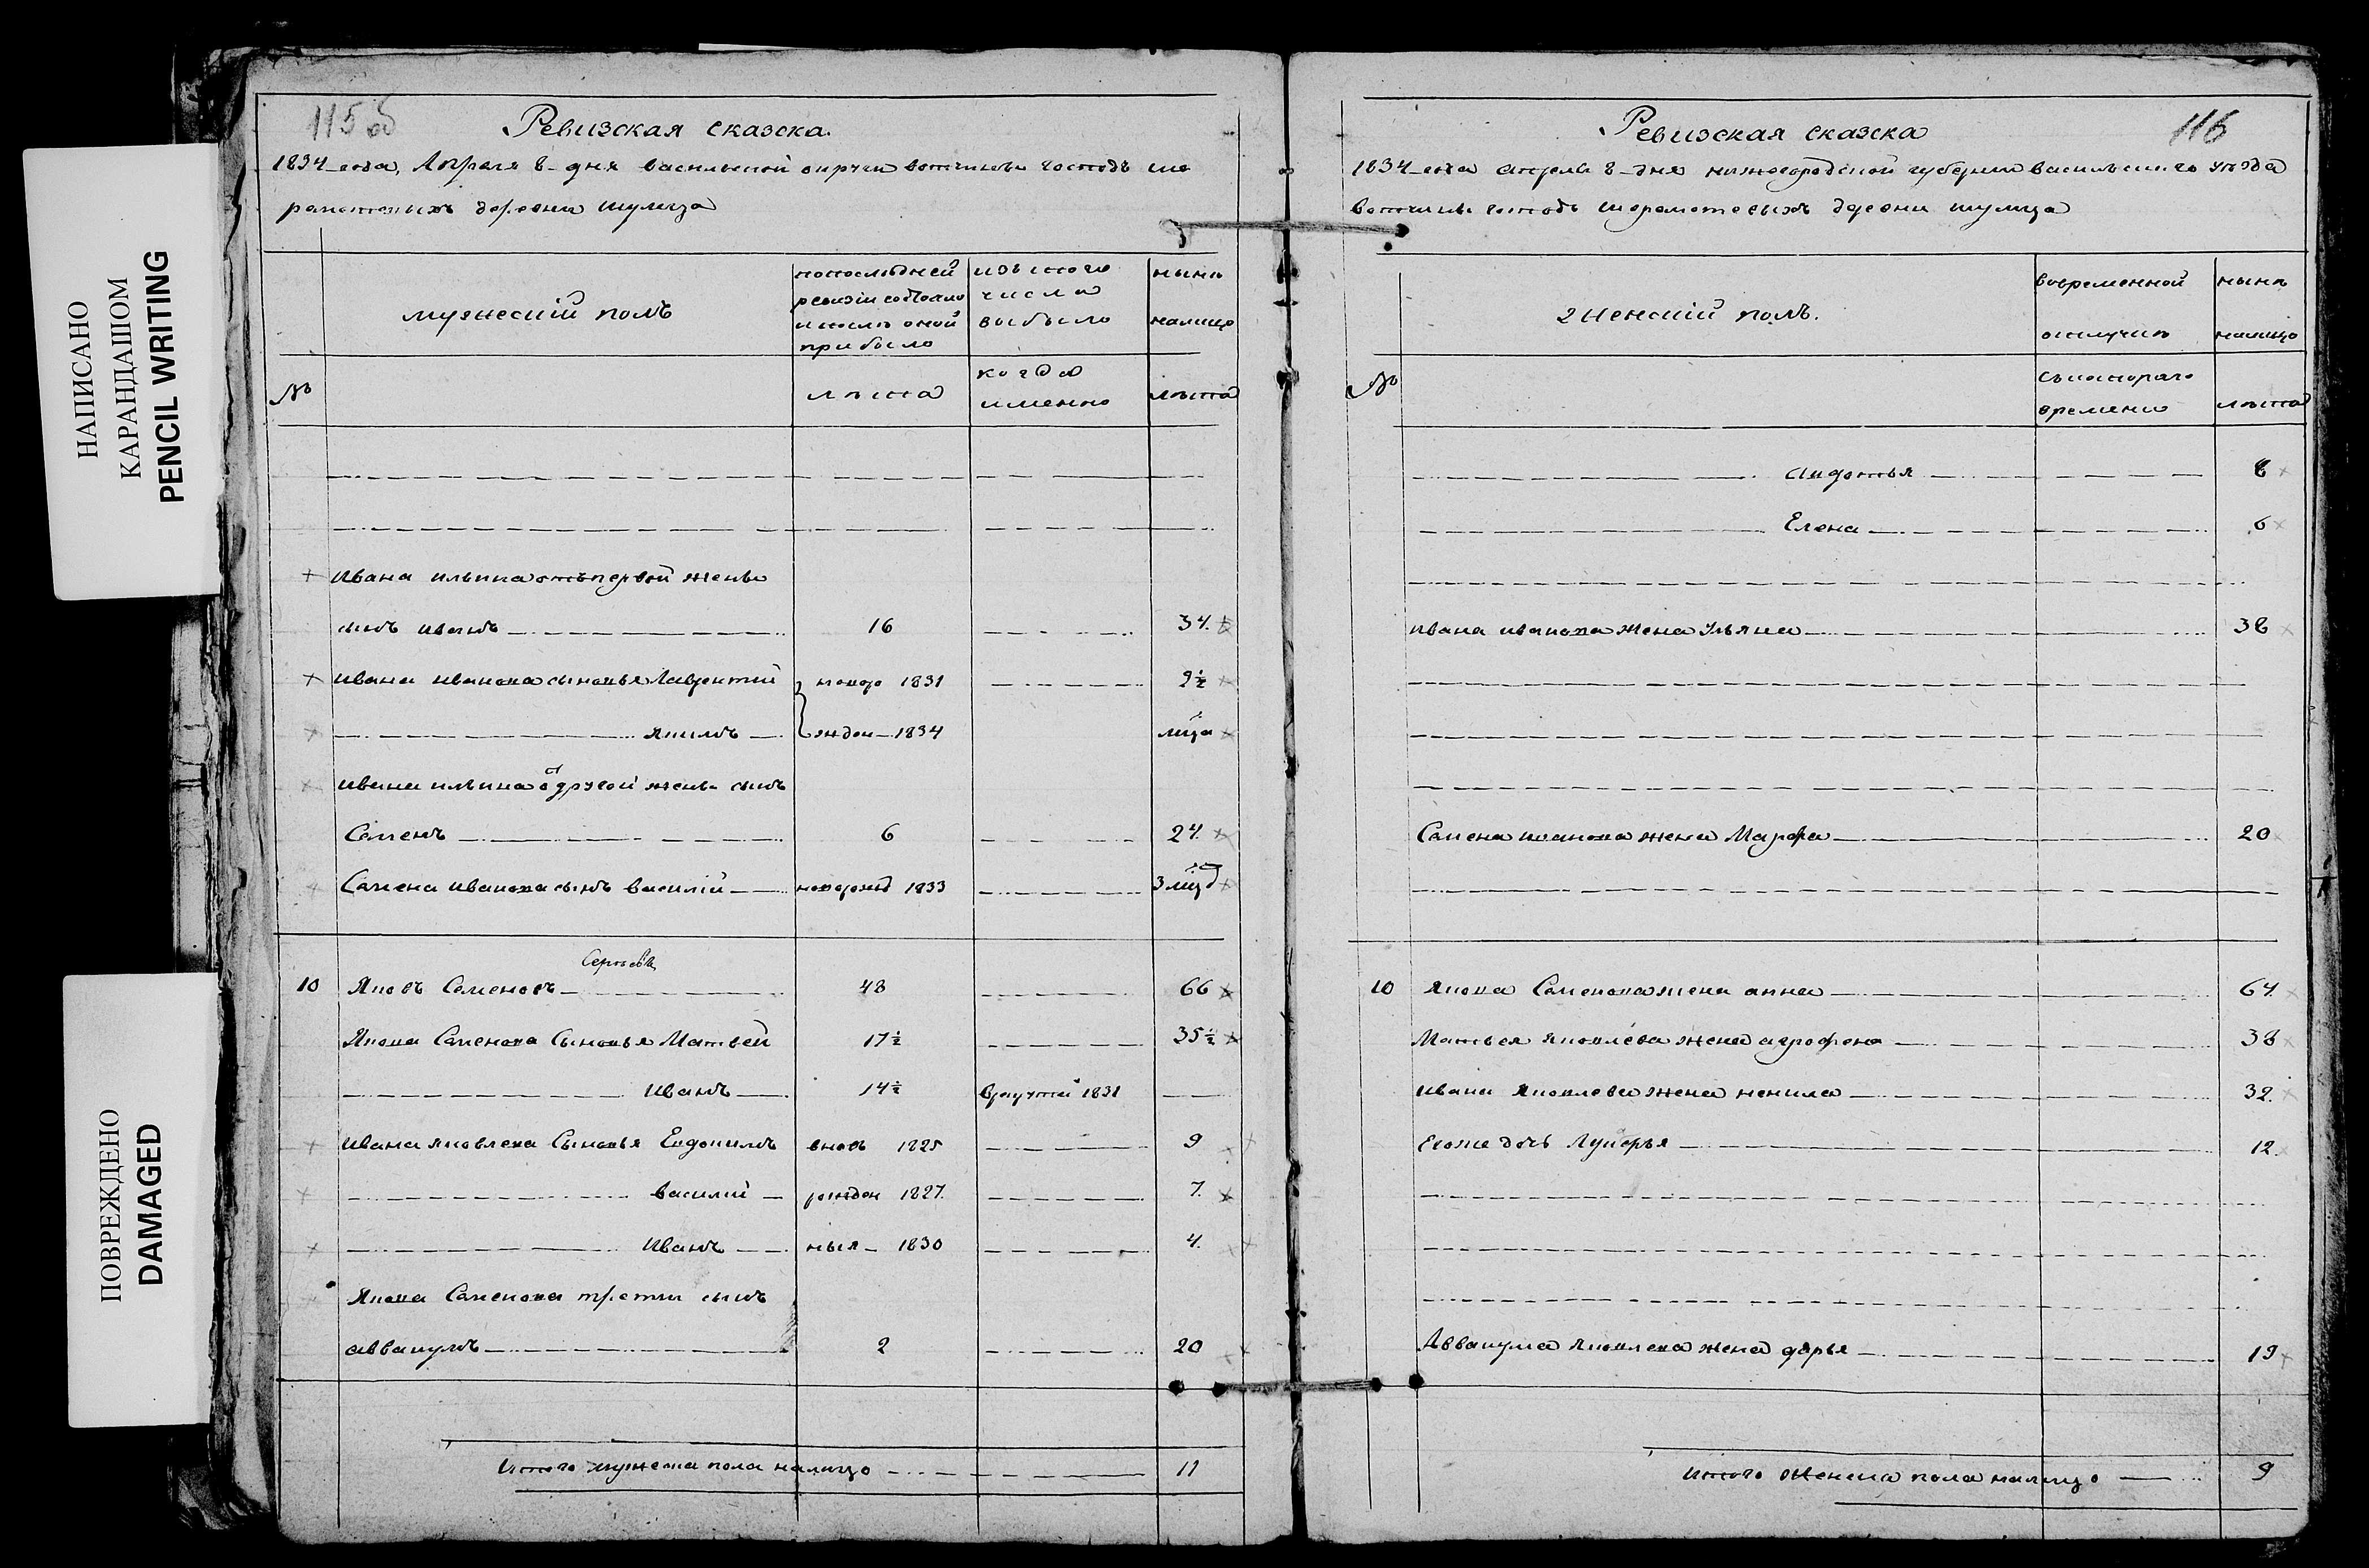 НАПИСАНО
КАРАНДАШОМ
PENCIL WRITING
ПОВРЕЖДЕНО
DAMAGED
115 об
Ревизская сказска
1834 года, Апреля 8 дня васильской округи вотчины господъ ше
реметевыхъ деревни шумеца
мужеский полъ
попоследней ревизии состояло и после оной прибыло
изъ того числа выбыло
ныне налицо
№
лета
когда именно
лета
Ивана ильина отъ первой жены
сынъ иванъ 16 34
Ивана иванова сыновья Лаврентий новоро 1831 2½
Якимъ жден 1834
Ивана ильина от другой жены сынъ
Семенъ 6 24
Семена иванова сынъ василий новорожд 1833 3
Сергеевъ
10 Яковъ Семеновъ 48 66
Якова Семенова Сыновья Матвей 17½ 35½
Иванъ 14½ врекруты 1831
Ивана яковлева Сыновья Евдокимъ вновь 1825 9
василий рожден 1827 7
Иванъ ныя 1830 4
Якова Семенова третий сынъ
аввакумъ 2 20
Итого мужеска пола налицо 11
116
Ревизская сказска
1834 года апреля 8 дня нижегородской губернии васильскаго уезда
вотчины господъ шереметевыхъ деревни шумеца
женский полъ.
вовременной отлучке
ныне налицо
№
съкотораго времени
лета
Авдотья 8
Елена 6
ивана иванова жена Ульяна 38
Семена иванова жена Марфа 20
10 Якова Семенова жена анна 64
Матвея яковлева жена агрофена 38
ивана яковлева жена ненила 32
Егоже дочь Лукерья 12
Аввакума яковлева жена дарья 19
Итого женска пола налицо 9